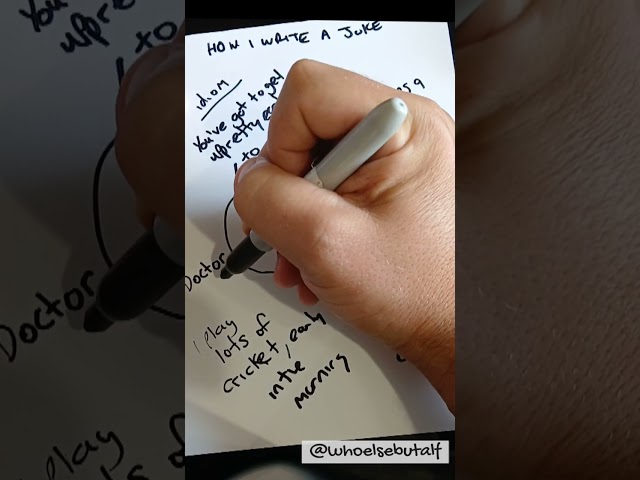 HOW I WRITE A JOKE
idiom
You've got to get
up pretty
to
Doctor
I play
lots of
cricket, early
in the
morning
@whoelsebutalf